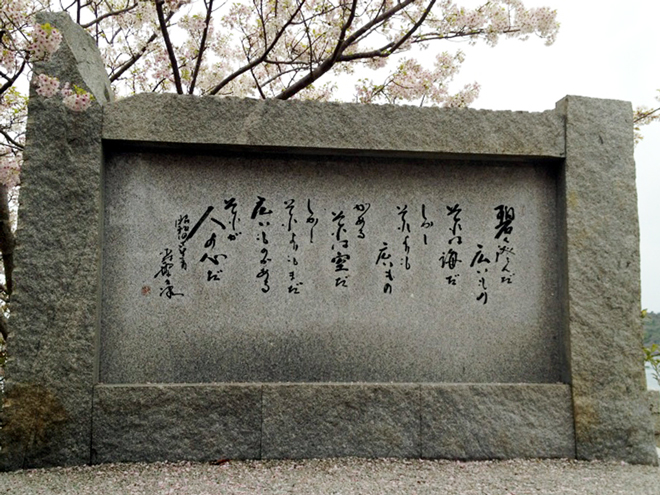 碧く澄んだ
広いもの
それは海だ
しかし
それよりも
広いもの
がある
それは空だ
しかし
それよりもまだ
広いものがある
それが
人の心だ